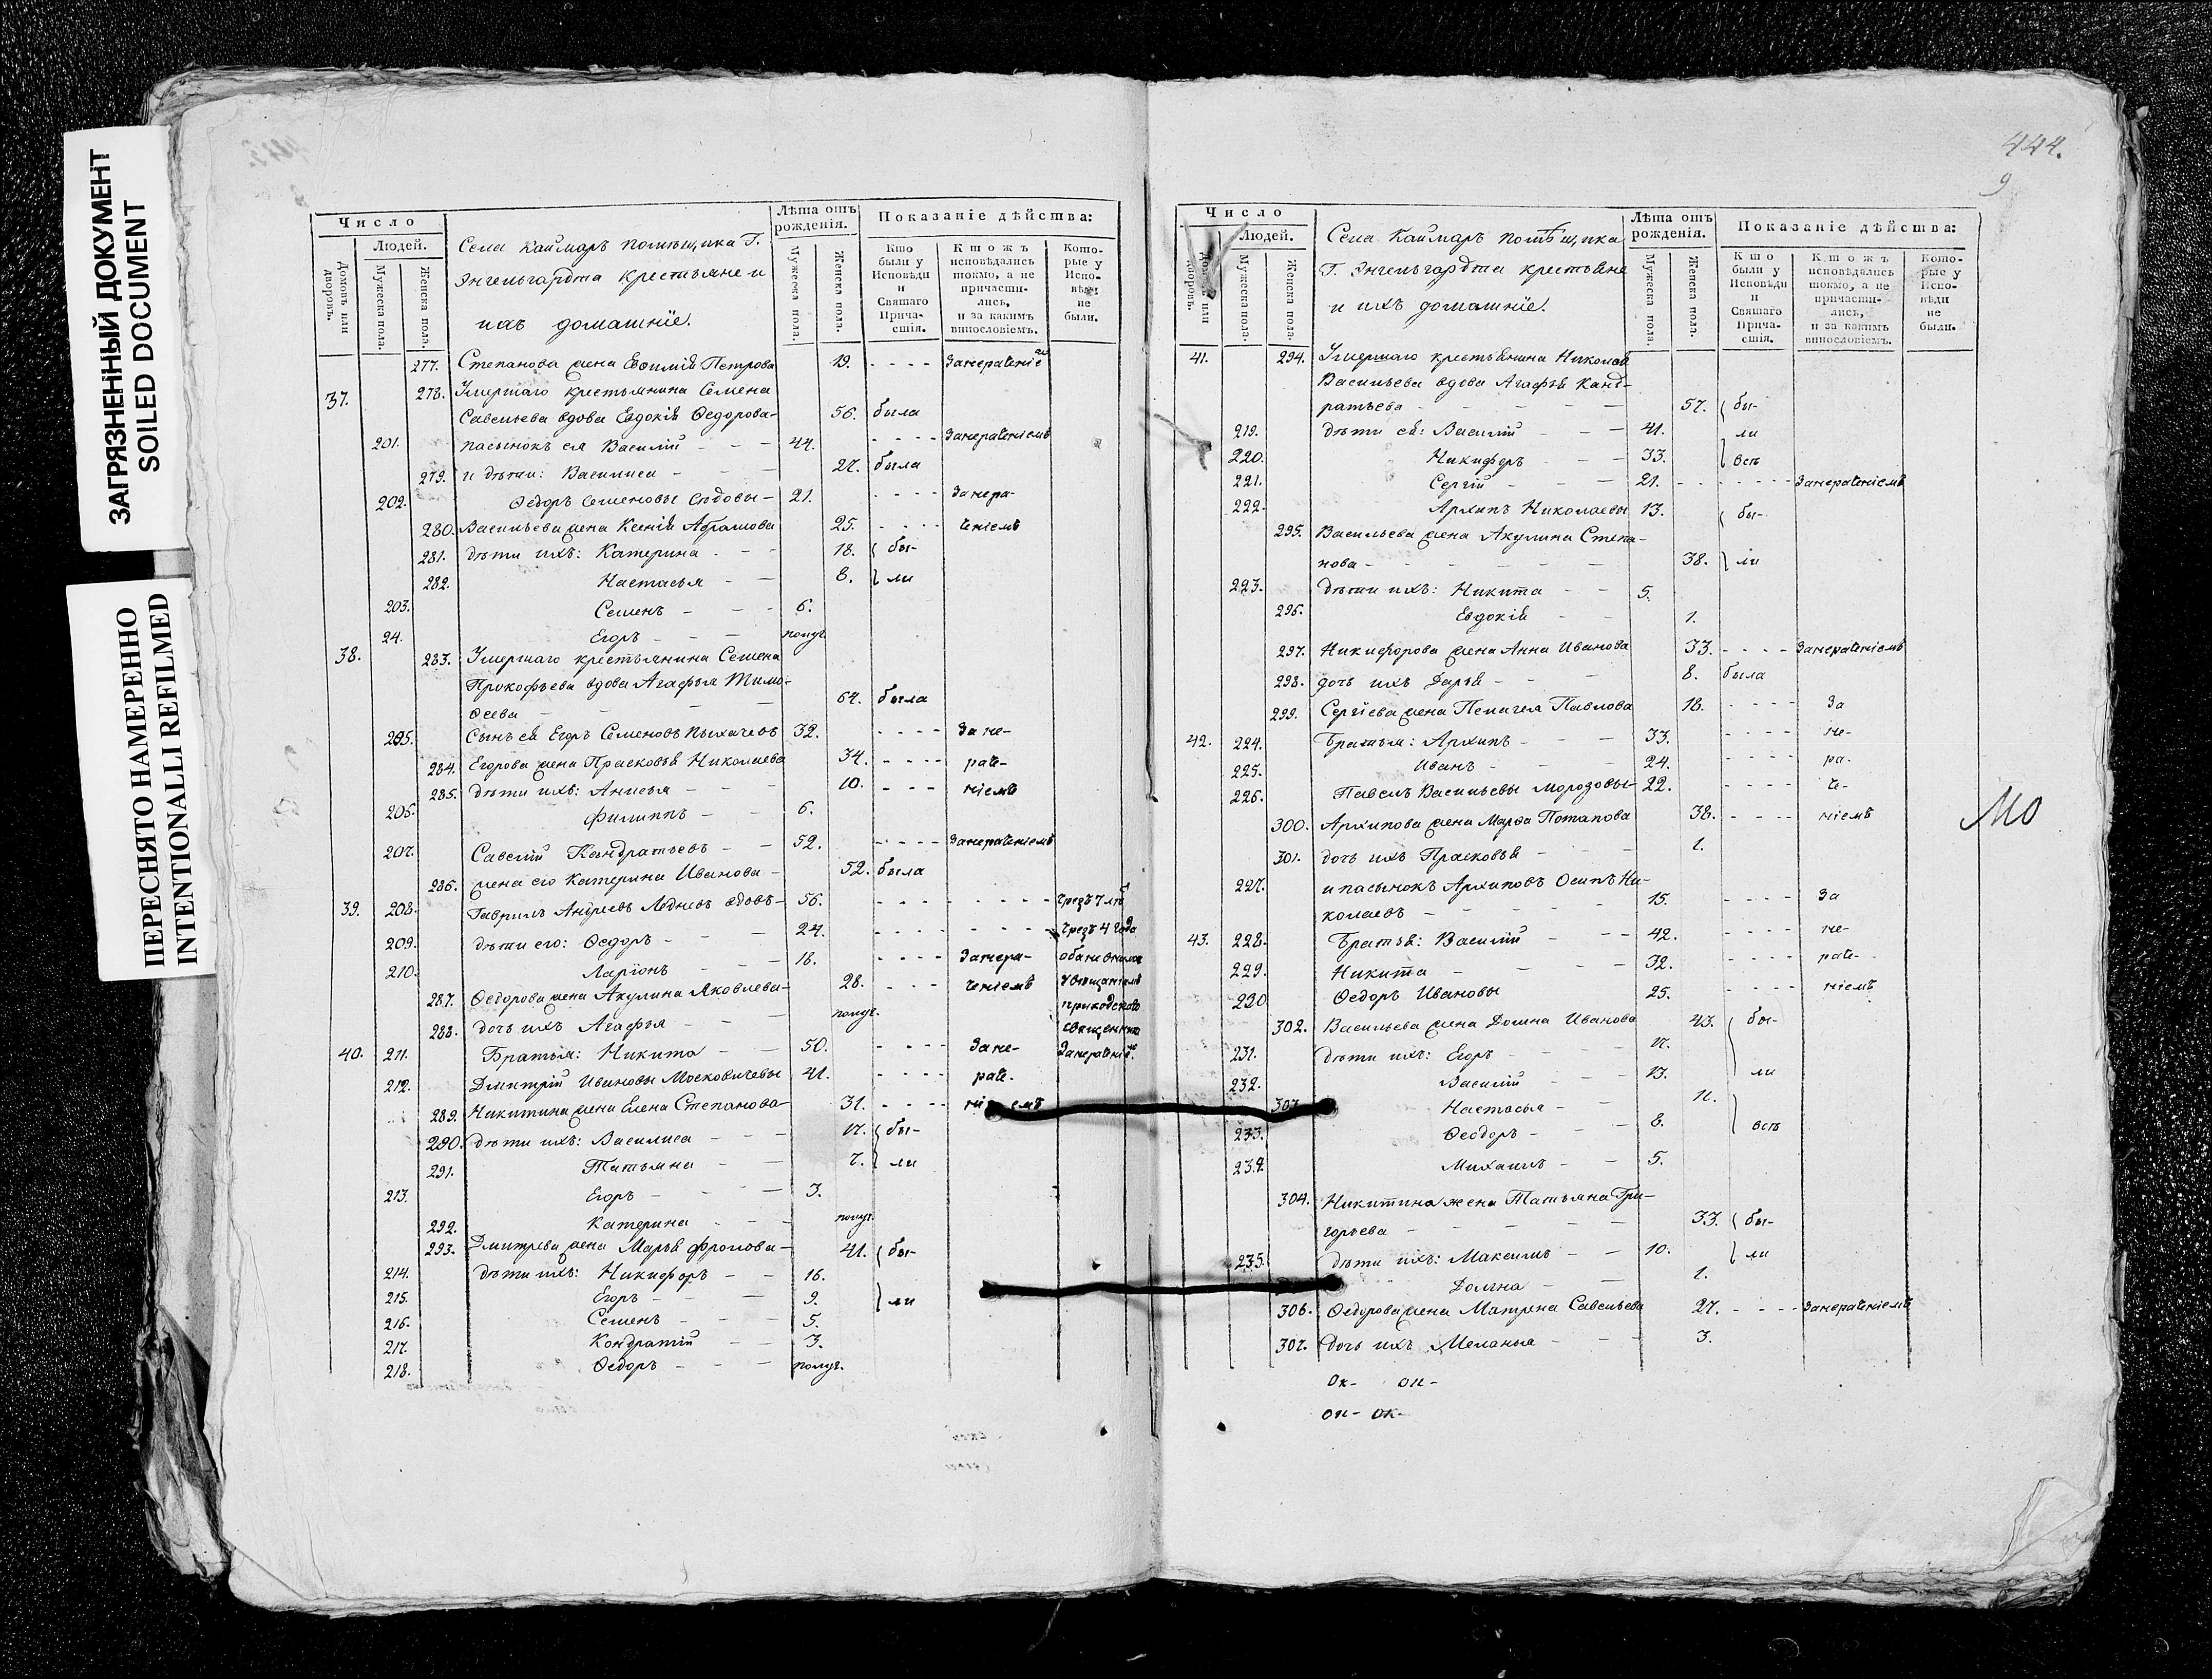 ЗАГРЯЗНЕННЫЙ ДОКУМЕНТ
SOILED DOCUMENT
ПЕРЕСНЯТО НАМЕРЕННО
INTENTIONALLI REFILMED
Число
Людей.
Домовъ или дворовъ.
Мужеска пола.
Женска пола.
Села Каймаръ помѣщика Г.
Энгельгардта крестьяне и
ихъ домашніе.
Лѣта отъ рождения.
Мужеска пола.
Женска пола.
Показаніе дѣйства:
Кто были у Исповѣди и Святаго Причастія.
Ктожъ исповѣдались токмо, а не причастились, и за какимъ винословіемъ.
Которые у Исповѣди не были.
277. Степанова жена Евѳимія Петрова 19. - - - -
37. 278. Умершаго крестьянина Семена
Савельева вдова Евдокія Ѳедорова - 56. была
201. пасынокъ ея Василій - - 44. - - - - занераченіемъ
279. и дѣти: Василиса - - 27. была
202. Ѳедоръ Семеновы - 21. - - - - занера-
280. Васильева жена Ксенія Абрамова 25. - - - - ченіемъ
281. дѣти ихъ: Катерина - - 18. бы-
282. Настасья - - 8. ли
203. Семенъ - - - 6.
24. Егоръ - - - полуг.
38. 283. Умершаго крестьянина Семена
Прокофьева вдова Агафья Тимо-
ѳеева - - - - 64. была
205. Сынъ ея Егоръ Семеновъ 32. - - - - зане-
284. Егорова жена Прасковья Николаева 34. - - - - раче-
285. дѣти ихъ: Анисья - - - 10. - - - ніемъ
206. Филиппъ - - 6.
207. Савелій Кандратьевъ - - 52. - - - - занераченіемъ
286. жена его Катерина Иванова - 52. была
39. 208. Гаврилъ Андреевъ Ледневъ вдовъ - 56. - - - - чрезъ 7 лѣт
209. дѣти его: Ѳедоръ - - - 24. - - - - чрезъ 4 года
210. Ларіонъ - - - 18. - - - - занера-
287. Ѳедорова жена Акулина Яковлева - 28. - - - ченіемъ увѣщаніемъ
288. дочь ихъ Агафья - - - полуг. приходскаго
священника
40. 211. Братья: Никита - - 50. - - - - зане-
212. Дмитрій Ивановы Московичевы 41. - - - - раче-
289. Никитина жена Елена Степанова - 31. - - - - ніемъ
290. дѣти ихъ: Василиса - - - 17. бы-
291. Татьяна - - 7. ли
213. Егоръ - - - 3.
292. Катерина - - полуг.
293. Дмитрева жена Марья Фролова - 41. бы-
214. дѣти ихъ: Никифоръ - - 16.
215. Егоръ - - - 9. ли
216. Семенъ - - - 5.
217. Кондратій - - 3.
218. Ѳедоръ - - - полуг.
444.
9
Число
Людей.
Домовъ или дворовъ.
Мужеска пола.
Женска пола.
Села Каймаръ помѣщика
Г. Энгельгардта крестьяне
и ихъ домашніе.
Лѣта отъ рождения.
Мужеска пола.
Женска пола.
Показаніе дѣйства:
Кто были у Исповѣди и Святаго Причастія.
Ктожъ исповѣдались токмо, а не причастились, и за какимъ винословіемъ.
Которые у Исповѣди не были.
41. 294. Умершаго крестьянина Николая
Васильева вдова Агафья Канд-
ратьева - - - - - 57. бы-
219. дѣти ея: Василій - - 41. ли
220. Никифоръ - - 33. всѣ
221. Сергій - - - 21. - - - - - - занераченіемъ
222. Архипъ Николаевы 13. бы-
295. Васильева жена Акулина Степа-
нова - - - - - - 38. ли
223. дѣти ихъ: Никита - - 5.
296. Евдокія - - 1.
297. Никифорова жена Анна Иванова 33. - - - - занераченіемъ
298. дочь ихъ Дарья - - - 8. была
299. Сергіева жена Пелагея Павлова 18. - - - - за
42. 224. Братья: Архипъ - - - 33. - - - - не-
225. Иванъ - - - 24. - - - - ра-
226. Павелъ Васильевы Морозовы - 22. - - - - че-
300. Архипова жена Марѳа Потапова 38. - - - - ніемъ
301. дочь ихъ Прасковья - - - 1.
227. и пасынокъ Архиповъ Осипъ Ни-
колаевъ - - - - 15. - - - - за
43. 228. Братья: Василій - - - 42. - - - - не-
229. Никита - - - - 32. - - - - раче-
230 Ѳедоръ Ивановы 25. - - - - ніемъ
302. Васильева жена Домна Иванова 43. бы-
231. дѣти ихъ: Егоръ - - - 17.
232. Василій - - 13. ли
303. Настасья - - 11.
233. Ѳеодоръ - - - 8. всѣ
234. Михаилъ - - 5.
304. Никитина жена Татьяна Гри-
горьева - - - - - 33. бы-
235. дѣти ихъ: Максимъ - - 10. ли
Домна - - 1.
306. Ѳедорова жена Матрена Савельева 27. - - - - занераченіемъ
307. дочь ихъ Меланья - - - 3.
МО